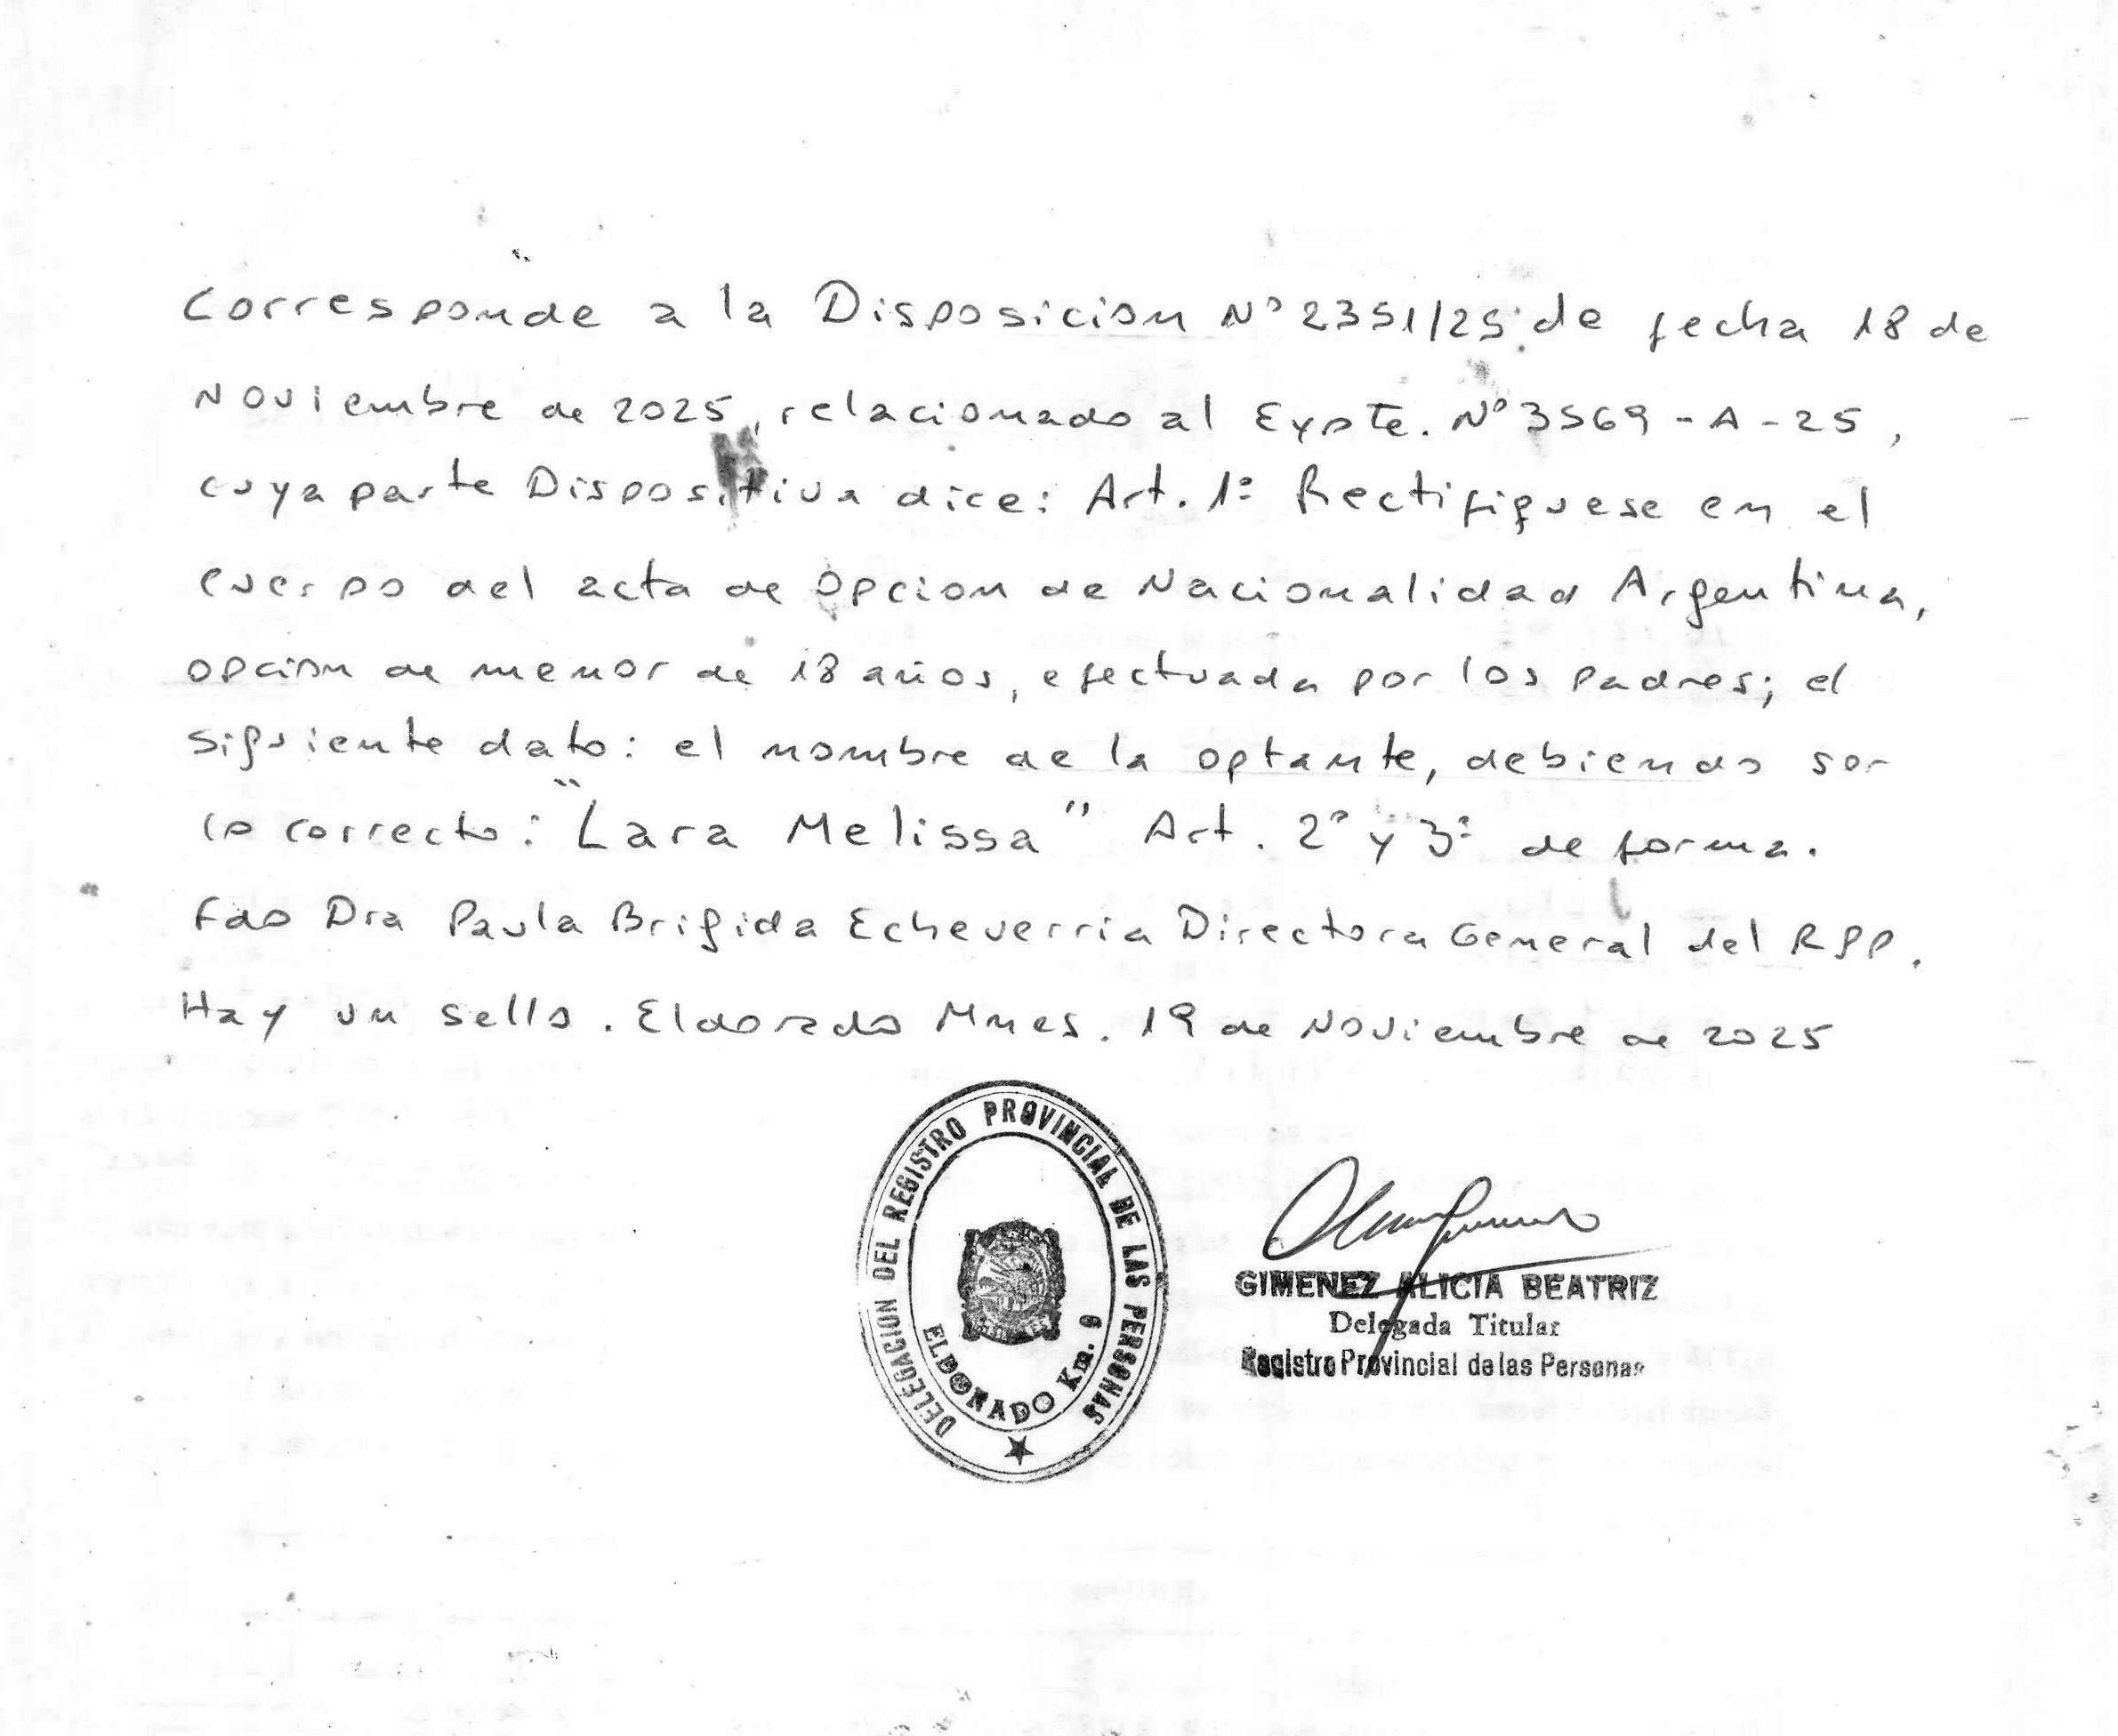 Corresponde a la Disposicion N° 2351/25 de fecha 18 de
Noviembre de 2025, relacionado al Expte. N° 3569-A-25,
cuya parte Dispositiva dice: Art. 1º Rectifiquese en el
cuerpo del acta de Opcion de Nacionalidad Argentina,
opcion de menor de 18 años, efectuada por los padres; el
siguiente dato: el nombre de la optante, debiendo ser
lo correcto: "Lara Melissa" Art. 2º y 3º de forma.
Fdo Dra Paula Brigida Echeverria Directora General del RPP.
Hay un sello. Eldorado Mnes. 19 de Noviembre de 2025
DELEGACION DEL REGISTRO PROVINCIAL DE LAS PERSONAS
ELDORADO Km. 9
GIMENEZ ALICIA BEATRIZ
Delegada Titular
Registro Provincial de las Personas